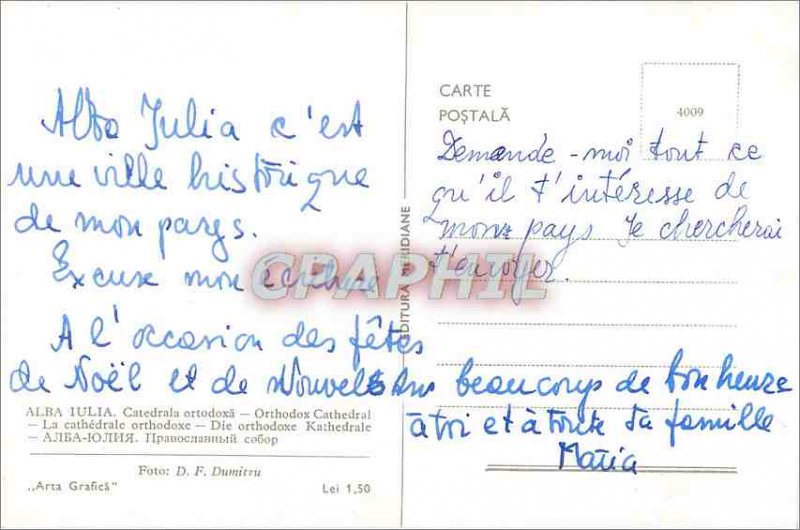 Alba Iulia c'est
une ville historique
de mon pays.
Excuse mon écriture
A l'occasion des fêtes
de Noël et de Nouvel Ans beaucoup de bonheure
à toi et à toute ta famille
Maria
ALBA IULIA. Catedrala ortodoxă — Orthodox Cathedral
— La cathédrale orthodoxe — Die orthodoxe Kathedrale
— АЛБА-ЮЛИЯ. Православный собор
Foto: D. F. Dumitru
„Arta Grafică"
Lei 1,50
EDITURA MERIDIANE
CARTE
POȘTALĂ
4009
Demande-moi tout ce
qu'il t'intéresse de
mon pays Je chercherai
t'envoyer.
CPAPHIL